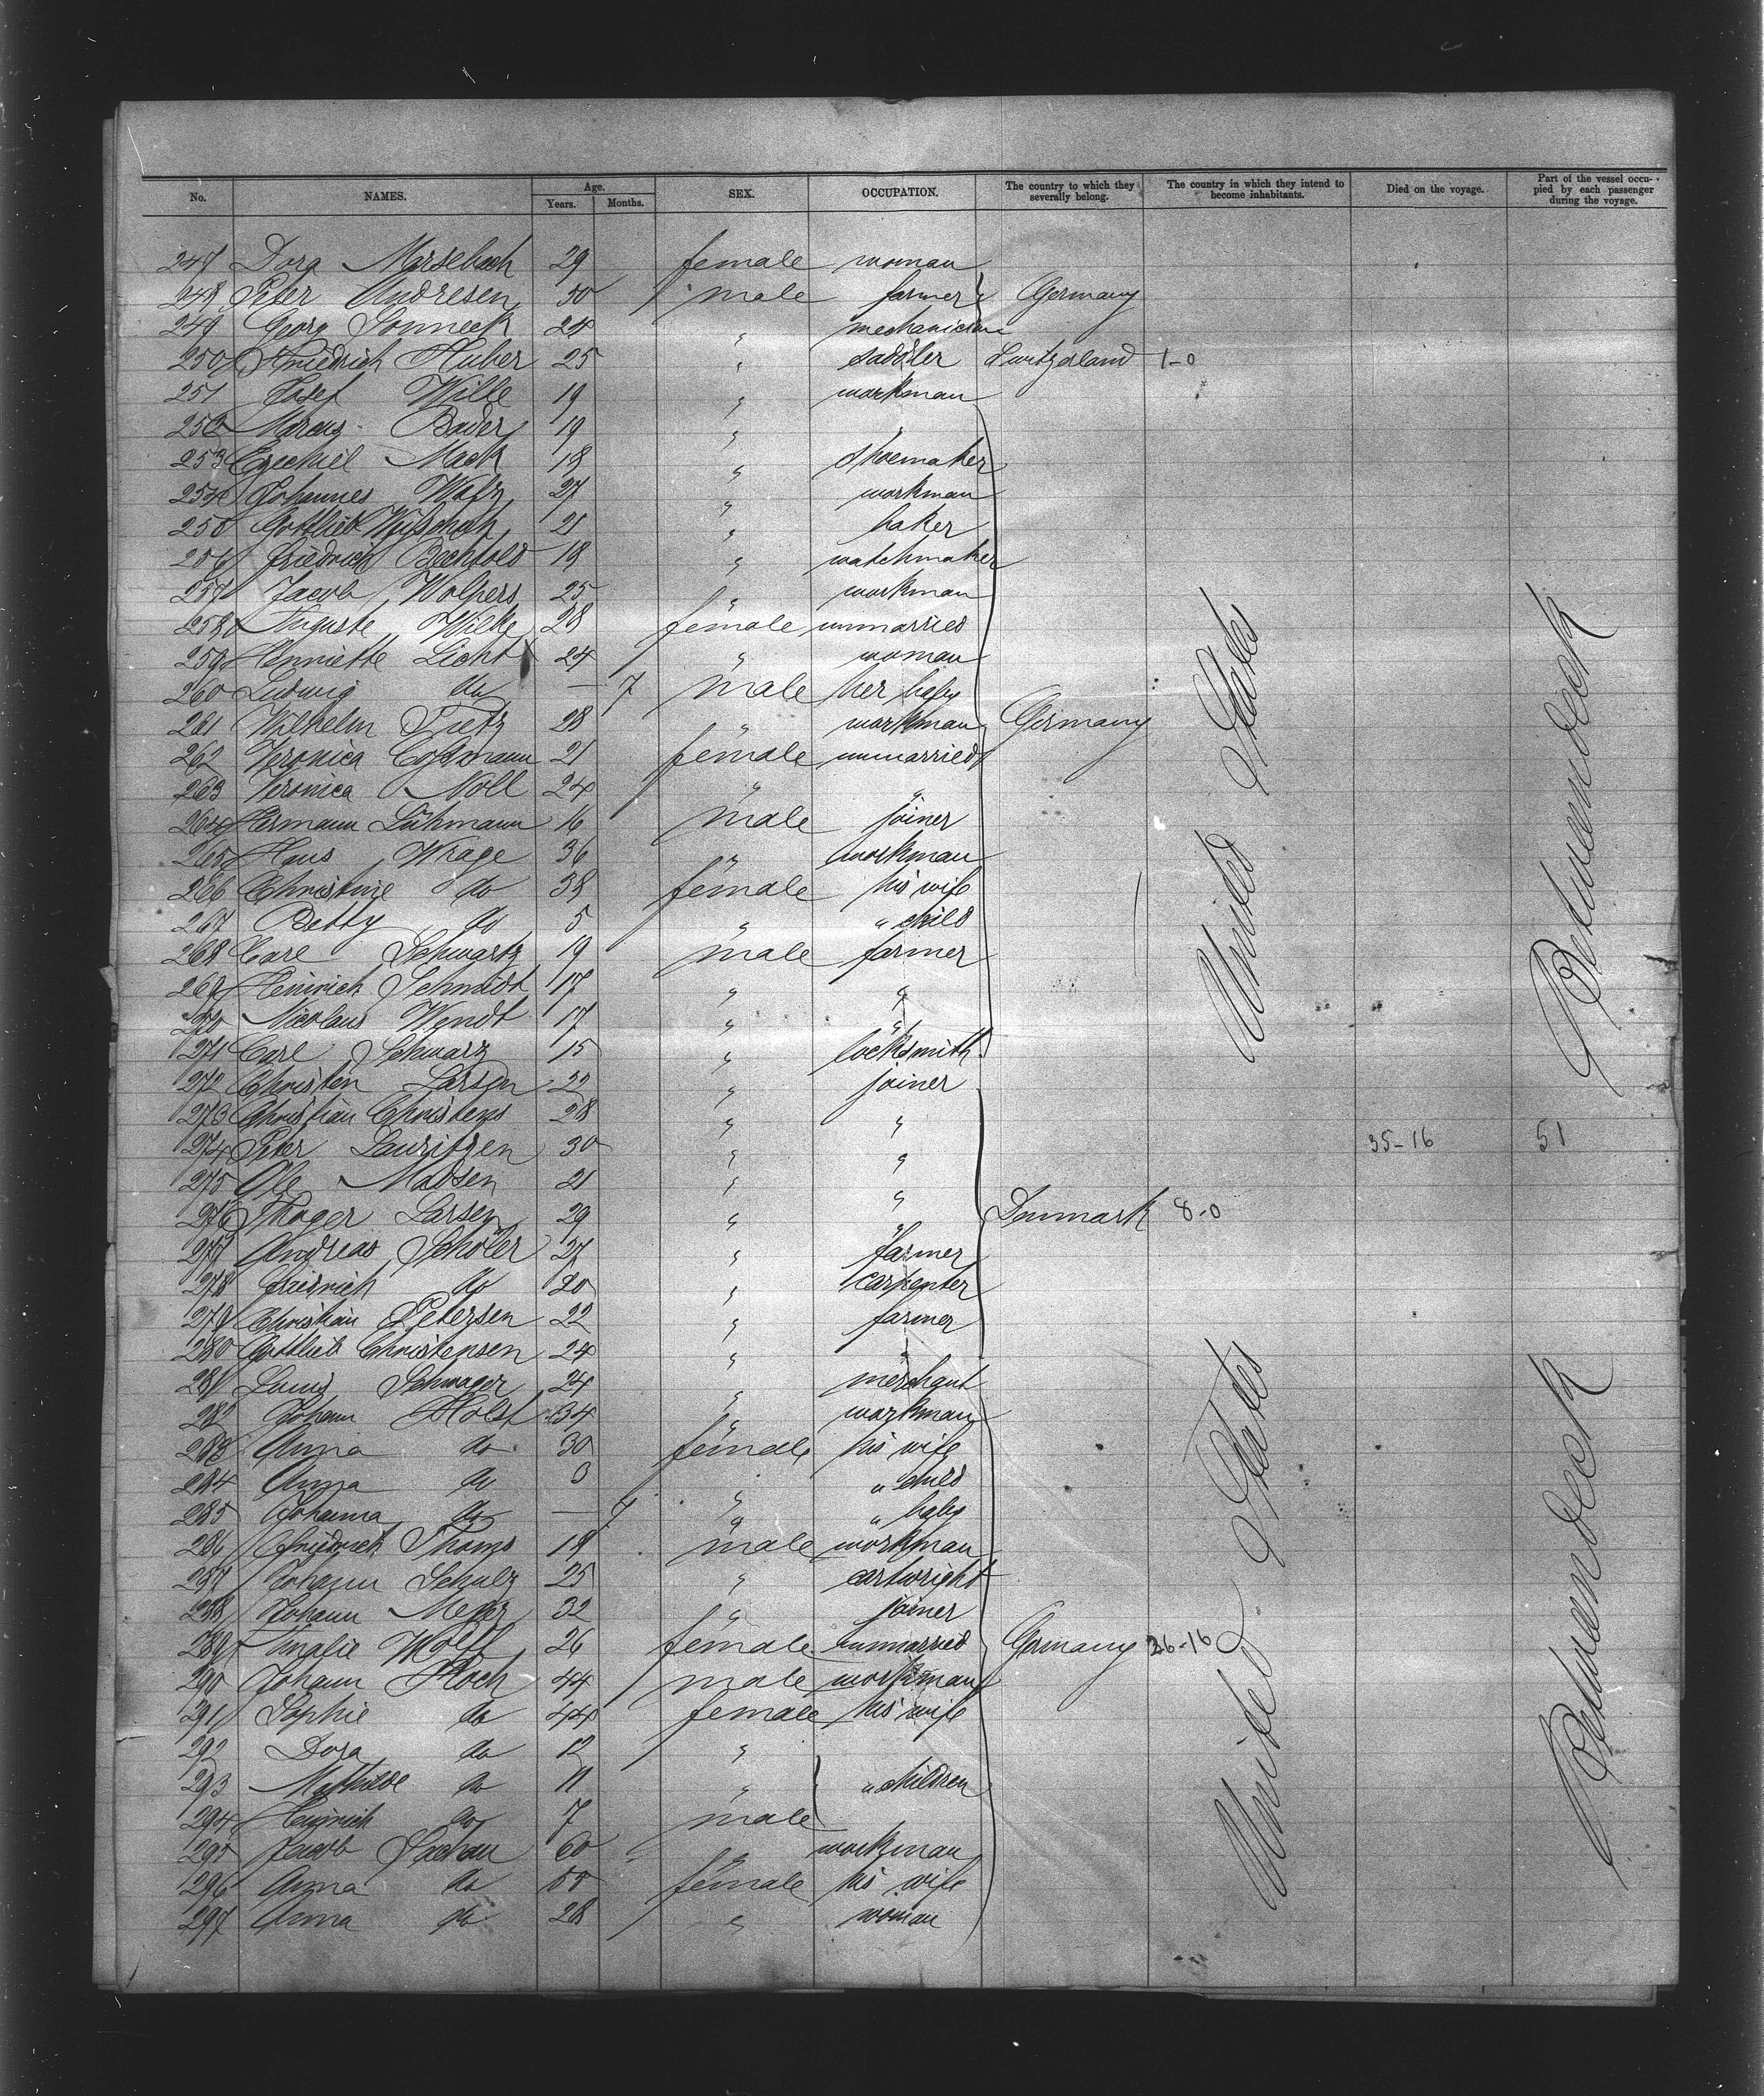 No. NAMES. Age. Years. Months. SEX. OCCUPATION. The country to which they severally belong. The country in which they intend to become inhabitants. Died on the voyage. Part of the vessel occupied by each passenger during the voyage.
247 Dora Marsebach 29 female woman
248 Peter Andresen 50 male farmer Germany
249 Georg Sonneck 24 " mechanician
250 Friedrich Huber 25 " saddler Switzerland 1-0
251 Josef Wille 19 " workman
252 Marcus Bader 19 " "
253 Ezechiel Mack 18 " shoemaker
254 Johannes Watz 27 " workman
255 Gottlieb 21 " baker
256 Friedrich Bechtold 18 " watchmaker
257 Jacob Wolpers 25 " workman
258 Auguste Wilke 28 female unmarried
259 Henriette Licht 24 " woman
260 Ludwig do — 7 male her baby
261 Wilhelm Tietz 28 " workman Germany
262 Veronica Cossmann 21 female unmarried
263 Veronica Noll 24 " "
264 Hermann Lühmann 16 male joiner
265 Hans Wrage 36 " workman
266 Christine do 38 female his wife
267 Betty do 5 " " child
268 Carl Schwartz 19 male farmer
269 Heinrich Schmidt 17 " "
270 Nicolaus Wendt 17 " "
271 Carl Schwarz 15 " locksmith
272 Christen Larsen 22 " joiner
273 Christian Christens 28 " "
274 Peter Lauritzen 30 " " 35-16 51
275 Ole Madsen 21 " "
276 Thoger Larsen 29 " " Denmark 8-0
277 Andreas Scholer 27 " farmer
278 Friedrich do 20 " carpenter
279 Christian Petersen 22 " farmer
280 Gottlieb Christensen 24 " "
281 Louis Schwager 24 " merchant
282 Johann Holst 34 " workman
283 Anna do 30 female his wife
284 Anna do " " child
285 Johanna do — 7 " " baby
286 Friedrich Thoms 19 male workman
287 Johann Schulz 25 " cartwright
288 Johann Meyer 32 " joiner
289 Amalie Wolff 26 female unmarried Germany 26-16
290 Johann Koch 44 male workman
291 Sophie do 44 female his wife
292 Dora do 12 "
293 Mathilde do 11 " " children
294 Heinrich do 7 male
295 Jacob Lachau 60 " workman
296 Anna do 55 female his wife
297 Anna do 28 " woman
United States
United States
Betweendeck
Betweendeck